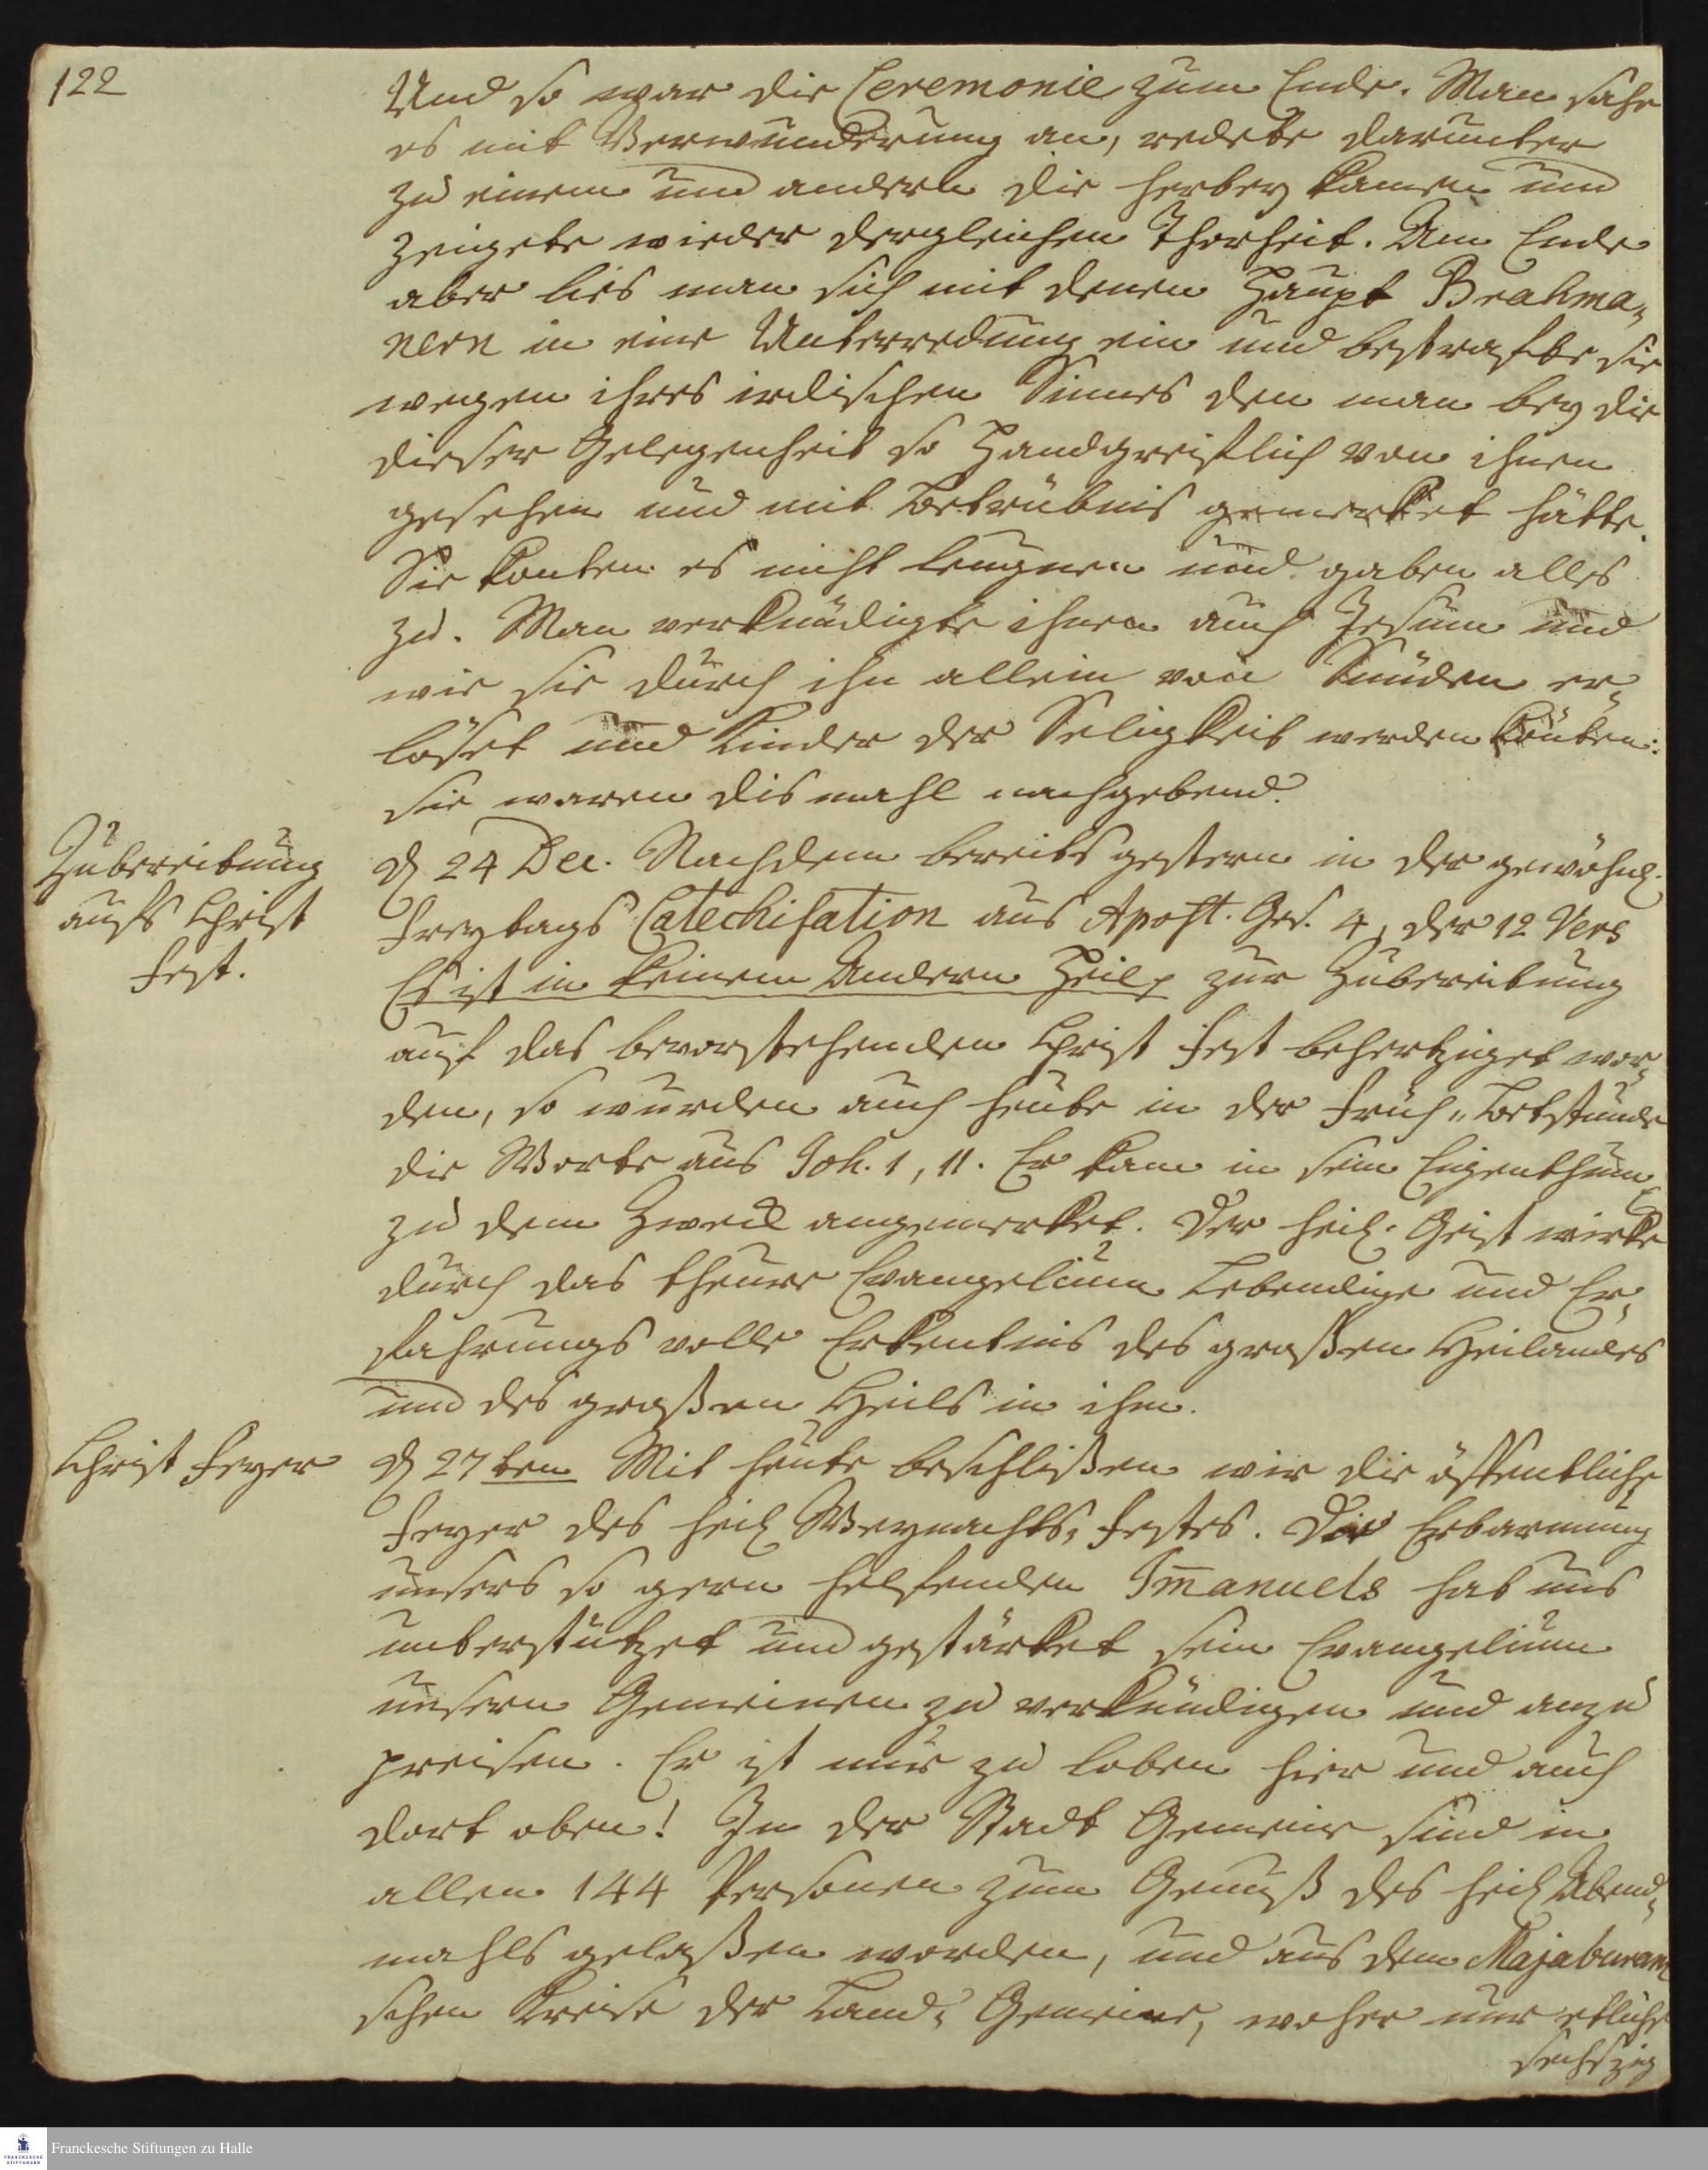 122
Und so war die Ceremonie zum Ende. Man sahe
es mit Verwunderung an, redete darunter
zu einem und andern die herbey kamen und
zeigete wieder dergleichen Thorheit. Am Ende
aber lies man sich mit denen Haupt Brahma„
nern in eine Unterredung ein und bestrafte sie
wegen ihres irdischen Sinnes den man bey die
dieser Gelegenheit so Handgreiflich von ihnen
gesehen und mit Betrübnis gemerket hätte.
Sie konten es nicht leugnen und gaben alles
zu. Man verkündigte ihnen auch Jesum und
wie sie durch ihn allein von Sünden er„
löset und Kinder der Seligkeit werden könten:
sie waren dismahl nachgebend.
Zubereitung
aufs Christ
Fest.
D 24 Dec. Nachdem bereits gestern in der gewöhnl.
Freytags Catechisation aus Apost. Ges. 4, der 12 Vers
Es ist in keinem Andern Heil zur Zubereitung
auf das bevorstehenden Christ Fest behertziget wor„
den, so wurden auch heute in der Früh„Betstunde
die Worte aus Joh. 1, 11. Er kam in sein Eigenthum
zu dem Zweck angemerket. Der heil. Geist wirke
durch das theure Evangelium Lebendige und Er„
fahrungs volle Erkentnis des großen Heilandes
und des großen Heils in ihm.
Christ Feyer
D 27ten Mit heute beschlißen wir die öffentliche
Feyer des heil Weynachts, Festes. Die Erbarmung
unsers so gern helfenden Im̅anuels hat uns
unterstützet und gestärket sein Evangelium
unsern Gemeinen zu verkündigen und anzu
preisen. Er ist nur zu loben hier und auch
dort oben! In der Stadt Gemeine sind in
allen 144 Personen zum Genuß des heil Abend„
mahls gelaßen worden, und aus dem Majaburam
schen Kreise der Land„ Gemeine, woher nur etliche
sechszig
Franckesche Stiftungen zu Halle